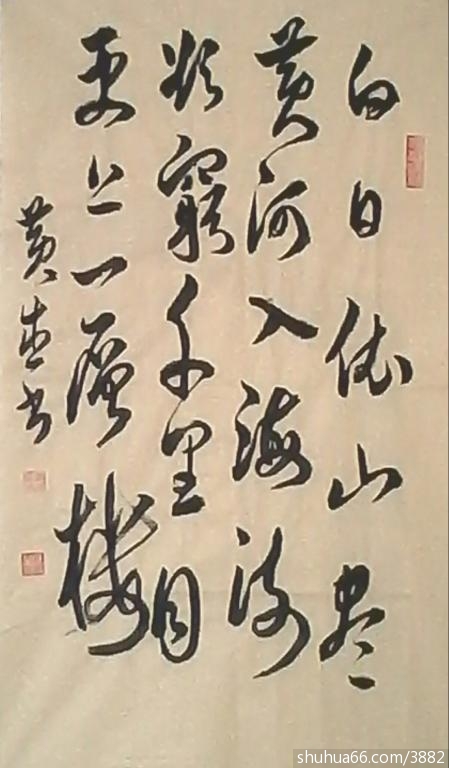 白日依山尽
黄河入海流
欲穷千里目
更上一层楼
黄 书
shuhua66.com/3882